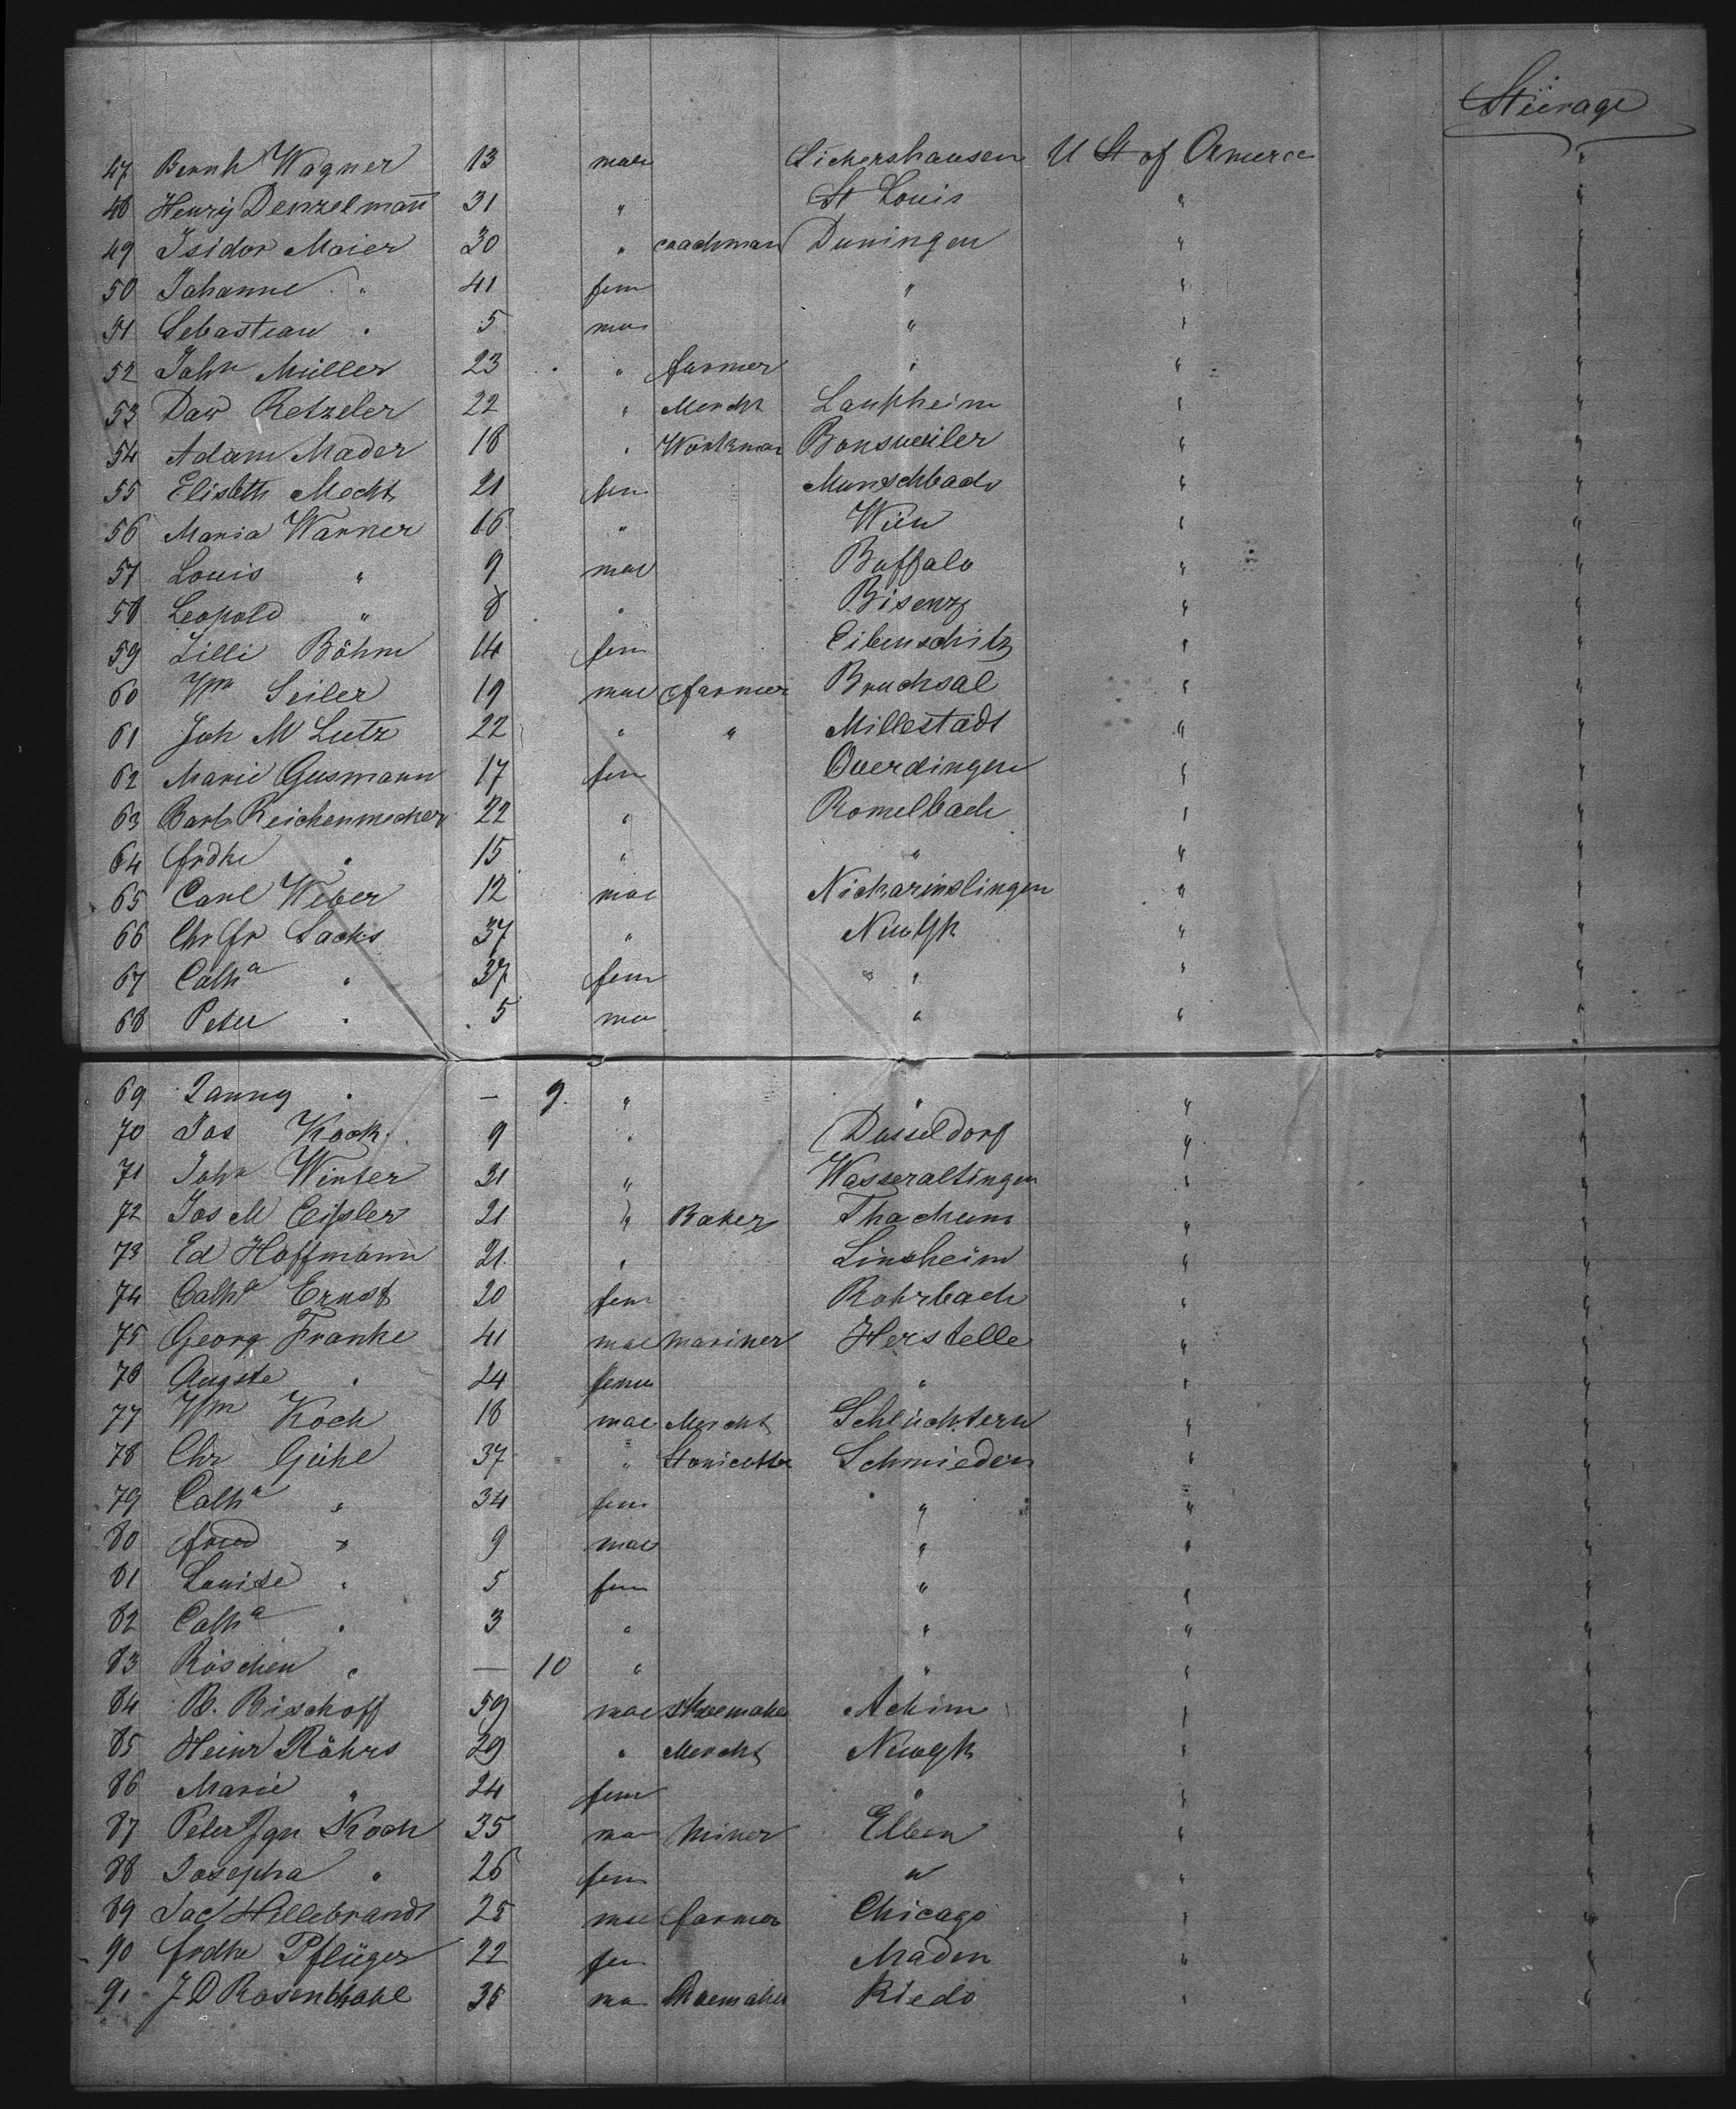 Steerage
47 Bernh Wagner 13 male Sickershausen U St of America "
48 Henry Denzelmann 31 " St Louis " "
49 Isidor Maier 30 " coachman Duningen " "
50 Johanne " 41 fem " " "
51 Sebastian " 5 mae " " "
52 Joh Müller 23 " farmer " " "
53 Dav Retzeler 22 " Mercht Laupheim " "
54 Adam Mader 18 " Workman Bonsweiler " "
55 Elisbth Mecht 21 fem " "
56 Maria Warner 16 " Wien " "
57 Louis " 9 mae Buffalo " "
58 Leopold " 8 " Bisenz " "
59 Lilli Böhm 14 fem Eibenschitz " "
60 Wm Seiler 19 mae farmer Bruchsal " "
61 Joh M Lutz 22 " " Millestadt " "
62 Marie Gusmann 17 fem Owerdingen " "
63 Barb Reichenmecher 22 " Romelbach " "
64 frdke " 15 " " " "
65 Carl Weber 12 mae " "
66 Chr Fr Sachs 37 " NewYk " "
67 Catha " 37 fem " " "
68 Peter " 5 mae " " "
69 " — 9 " " " "
70 Jos Koch 9 " Dusseldorf " "
71 Joh Winter 31 " Wasseraltingen " "
72 Jos M Eissler 21 " Baker " "
73 Ed Hoffmann 21 " Linsheim " "
74 Catha Ernst 20 fem Rohrbach " "
75 Georg Franke 41 mae mariner Herstelle " "
76 Auguste " 24 fem " " "
77 Wm Koch 18 mae Mercht Schluchtern " "
78 Chr Gühl 37 " Schmieden " "
79 Catha " 34 fem " " "
80 fried " 9 mae " " "
81 Louise " 5 fem " " "
82 Catha " 3 " " " "
83 Röschen " — 10 " " " "
84 B. Bischoff 59 mae shoemaker Achim " "
85 Heinr Röhrs 29 " Mercht NewYk " "
86 Marie " 24 fem " " "
87 Peter Jgn Koch 35 mae Miner Elben " "
88 Josepha " 26 fem " " "
89 Jac Hillebrandt 25 mae farmer Chicago " "
90 frdke Pflüger 22 fem Maden " "
91 J D Rosenthahl 35 mae shoemaker Riede " "